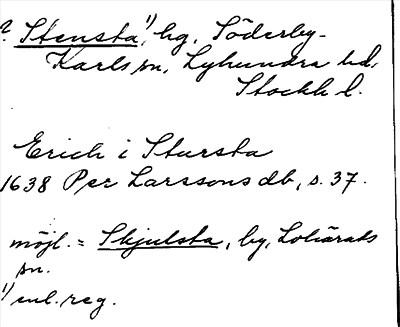 ? Stensta 1), hg, Söderby-
Karls sn, Lyhundra hd,
Stockh l.
Erich i Stursta
1638 Per Larssons db, s. 37.
möjl. = Skjulsta, by, Lohärads
sn.
1) enl. reg.